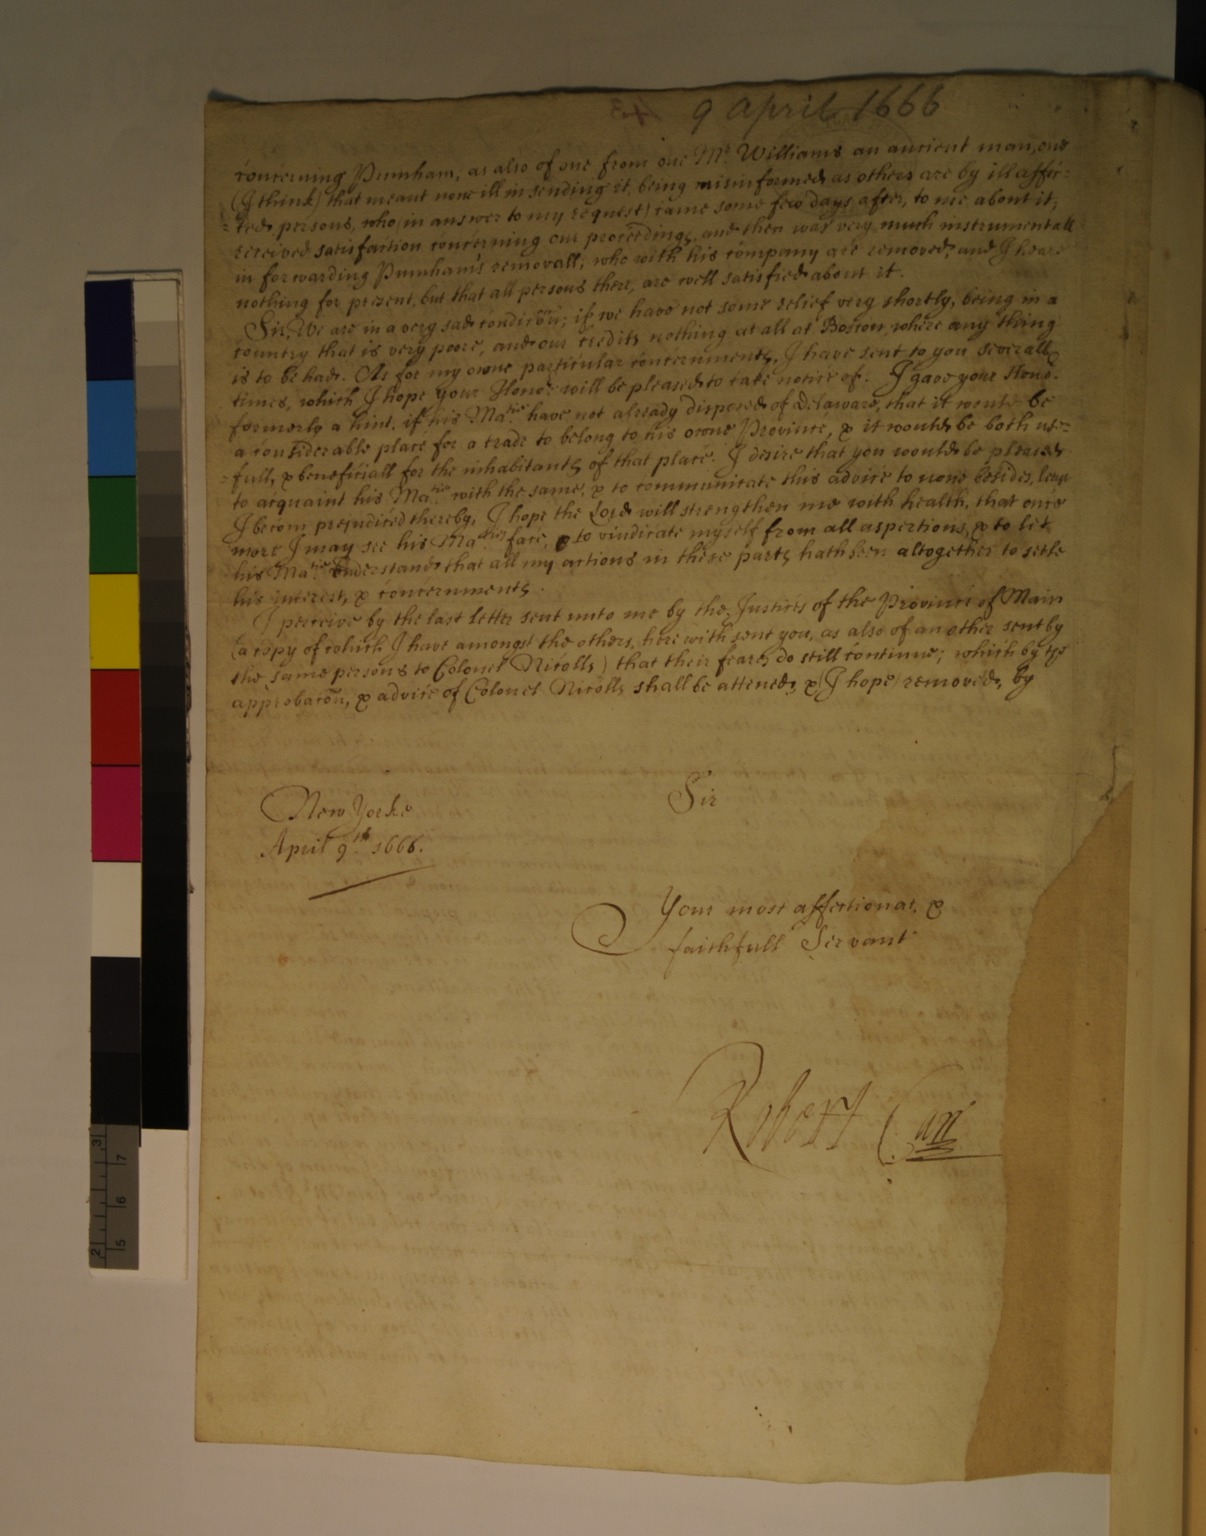 9 April 1666
concerning Pumham, as also of one from one Mr Williams an ancient man, one
(I think) that meant none ill in sending it, being misinformed as others are by ill affec-
-ted persons, who (in answer to my request) came some few days after, to me about it,
received satisfaction concerning our proceedings, and then was very much instrumentall
in forwarding Pumham's removall; who with his company are removed, and I heare
nothing for present, but that all persons there, are well satisfied about it.
Sir, We are in a very sad condicōn; if we have not some relief very shortly, being in a
Country that is very poore, and our credits nothing at all at Boston, where any thing
is to be had. As for my owne particular concernments, I have sent to you severall
times, which I hope your Honor: will be pleased to take notice of. I gave your Hono:
formerly a hint, if his Matie have not already disposed of Delaware, that it would be
a considerable place for a trade to belong to his owne Province, & it would be both use-
-full, & beneficiall for the inhabitants of that place. I desire that you would be pleased
to acquaint his Matie with the same, & to communicate this advice to none besides, least
I becom prejudiced thereby, I hope the Lord will strengthen me with health, that once
more I may see his Maties face, & to vindicate myself from all aspertions, & to let
his Matie understand that all my actions in these parts hath been altogether to settle
his interest, & concernments.
I perceive by the last letter sent unto me by the Justices of the Province of Main
(a copy of which I have amongst the others, here with sent you, as also of an other sent by
the same persons to Colonel Nicolls) that their feares do still continue; which by the
approbacōn, & advice of Colonel Nicolls shall be attened, & (I hope) removed, by
Sir
New Yorke
April 9th 1666.
Your most affectionat, &
faithfull Servant
Robert Carr